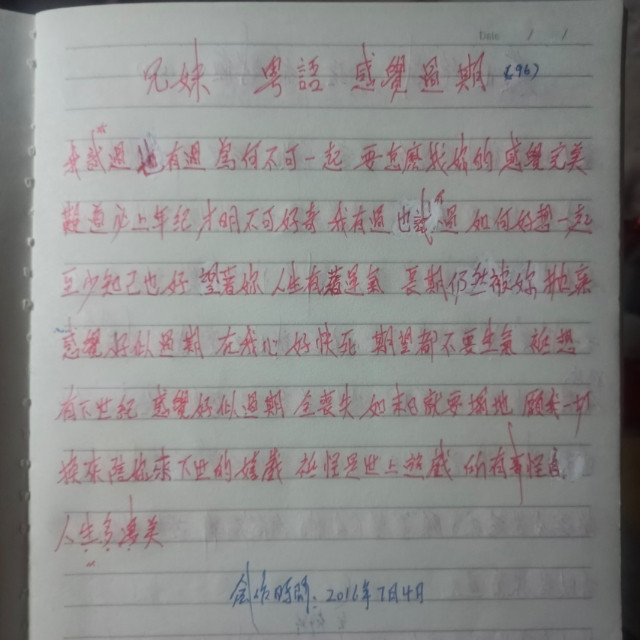 Date / /
兄妹 粵語 感覺過期 (96)
試過 也有過 為何不可一起 要怎麼我你的感覺完美
難道必上年纪才明不可好奇 我有過也試過 如何好想一起
至少知己也好 望著你 人生有著運氣 長期仍然被你拋棄
感覺好似過期 在我心好快死 期望都不要生氣 祗想
有下世紀 感覺好似過期 全喪失 如末日就要塌地 願我一切
換來陪你來下世的嬉戲 祗怪是世上遊戲 所有奪怪
人生多淒美
創作時間：2016年7月4日